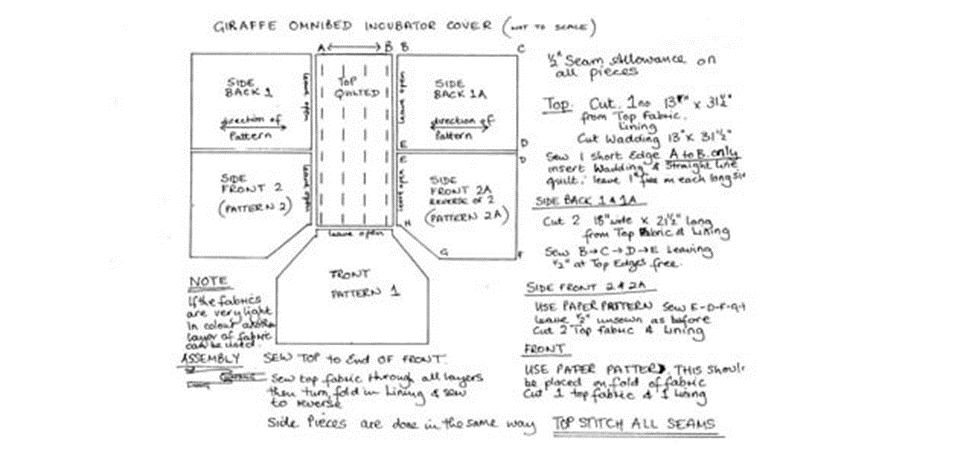 GIRAFFE OMNIBED INCUBATOR COVER (NOT TO SCALE)
A B B C
SIDE
BACK 1
direction of
Pattern
leave open
TOP
QUILTED
leave open
SIDE
BACK 1A
direction of
Pattern
E D
E D
SIDE
FRONT 2
(PATTERN 2)
leave open
leave open
SIDE
FRONT 2A
REVERSE OF 2
(PATTERN 2A)
H
G F
leave open
FRONT
PATTERN 1
NOTE
If the fabrics
are very light
in colour another
layer of fabric
can be used.
½" Seam Allowance on
all pieces
Top. Cut 1 no 13" x 31½"
from Top Fabric.
Lining
Cut Wadding 13" x 31½"
Sew 1 short Edge A to B only
insert Wadding & Straight line
quilt. leave 1" free on each long
SIDE BACK 1 & 1A
Cut 2 18" wide x 21½" long
from Top Fabric & Lining
Sew B→C→D→E Leaving
½" at Top Edges free.
SIDE FRONT 2 & 2A
USE PAPER PATTERN Sew E-D-F-G-H
leave ½" unsewn as before
Cut 2 Top fabric & Lining
FRONT
USE PAPER PATTERN. THIS
be placed on fold of fabric
Cut 1 top fabric & 1 lining
ASSEMBLY SEW TOP to End of FRONT.
Sew top fabric through all layers
then turn fold in Lining & sew
to reverse
Side Pieces are done in the same way TOP STITCH ALL SEAMS